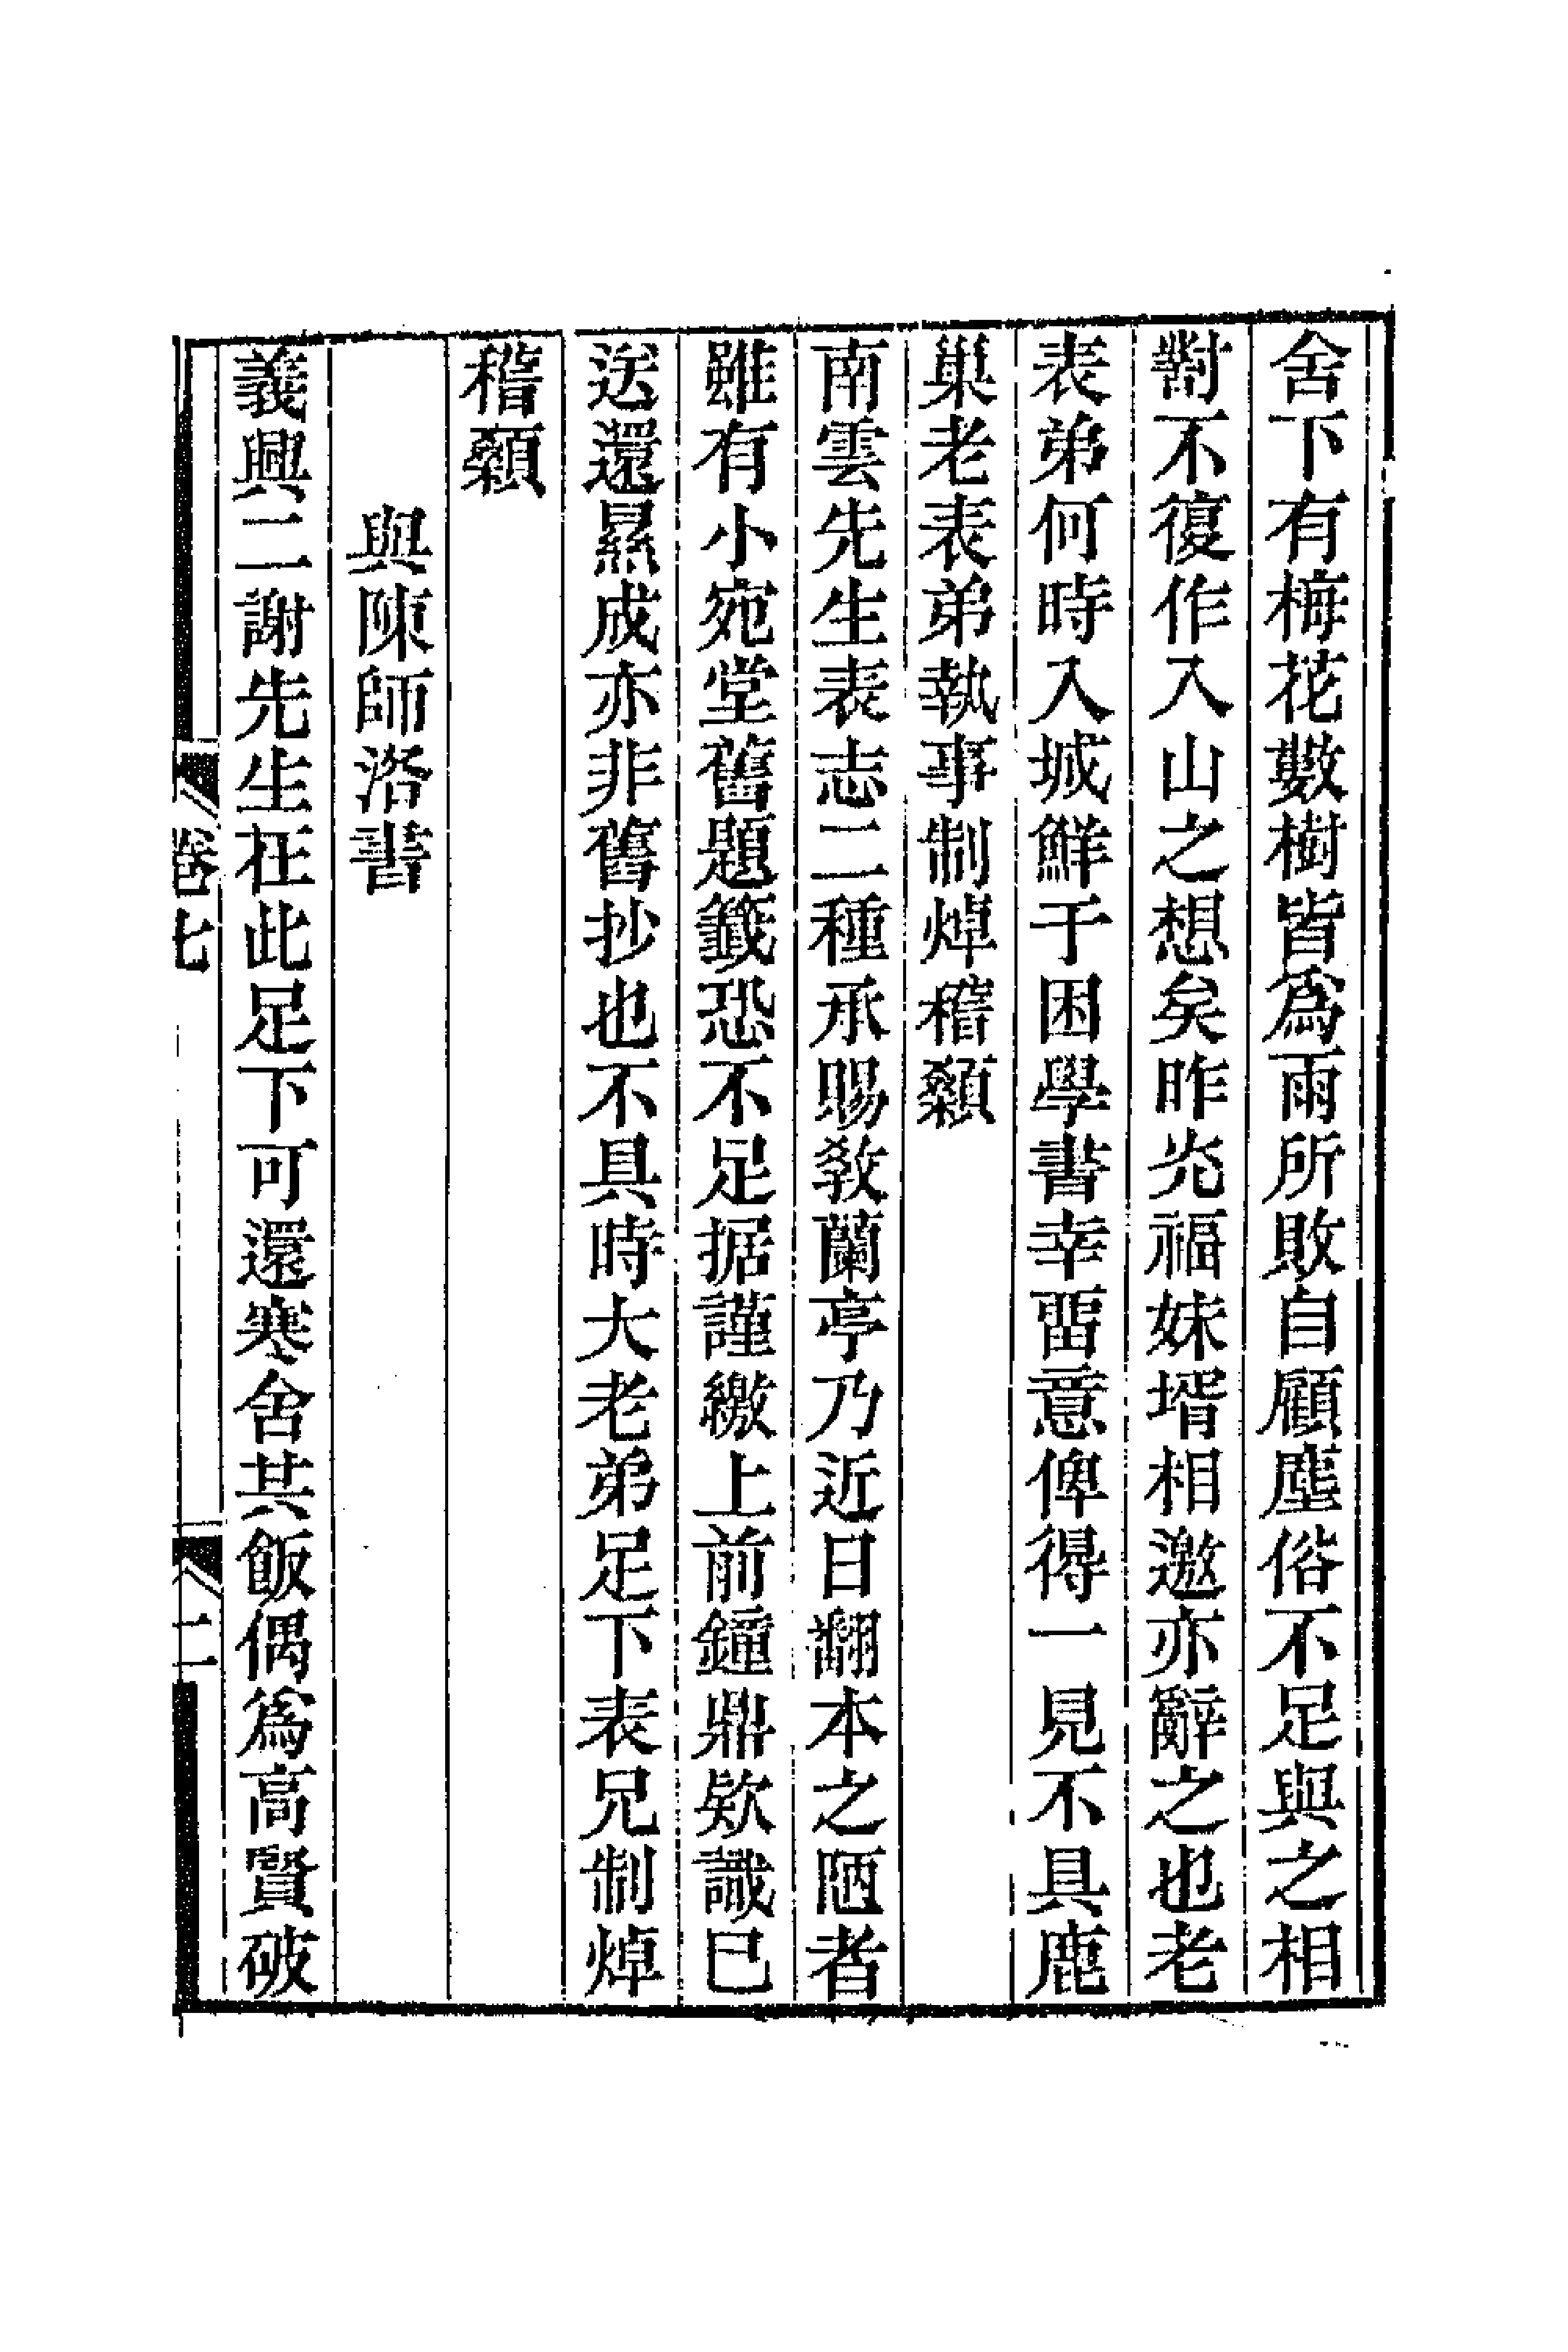 舍下有梅花數樹皆爲雨所敗自顧塵俗不足與之相
對不復作入山之想矣昨光福妹壻相邀亦辭之也老
表弟何時入城鮮于困學書幸畱意俾得一見不具鹿
巢老表弟執事制焯稽顙
南雲先生表志二種承賜敎蘭亭乃近日翻本之陋者
雖有小宛堂舊題籤恐不足据謹繳上前鐘鼎欵識已
送還㬎成亦非舊抄也不具時大老弟足下表兄制焯
稽顙
與陳師洛書
義興二謝先生在此足下可還寒舍共飯偶爲高賢破
卷七
二